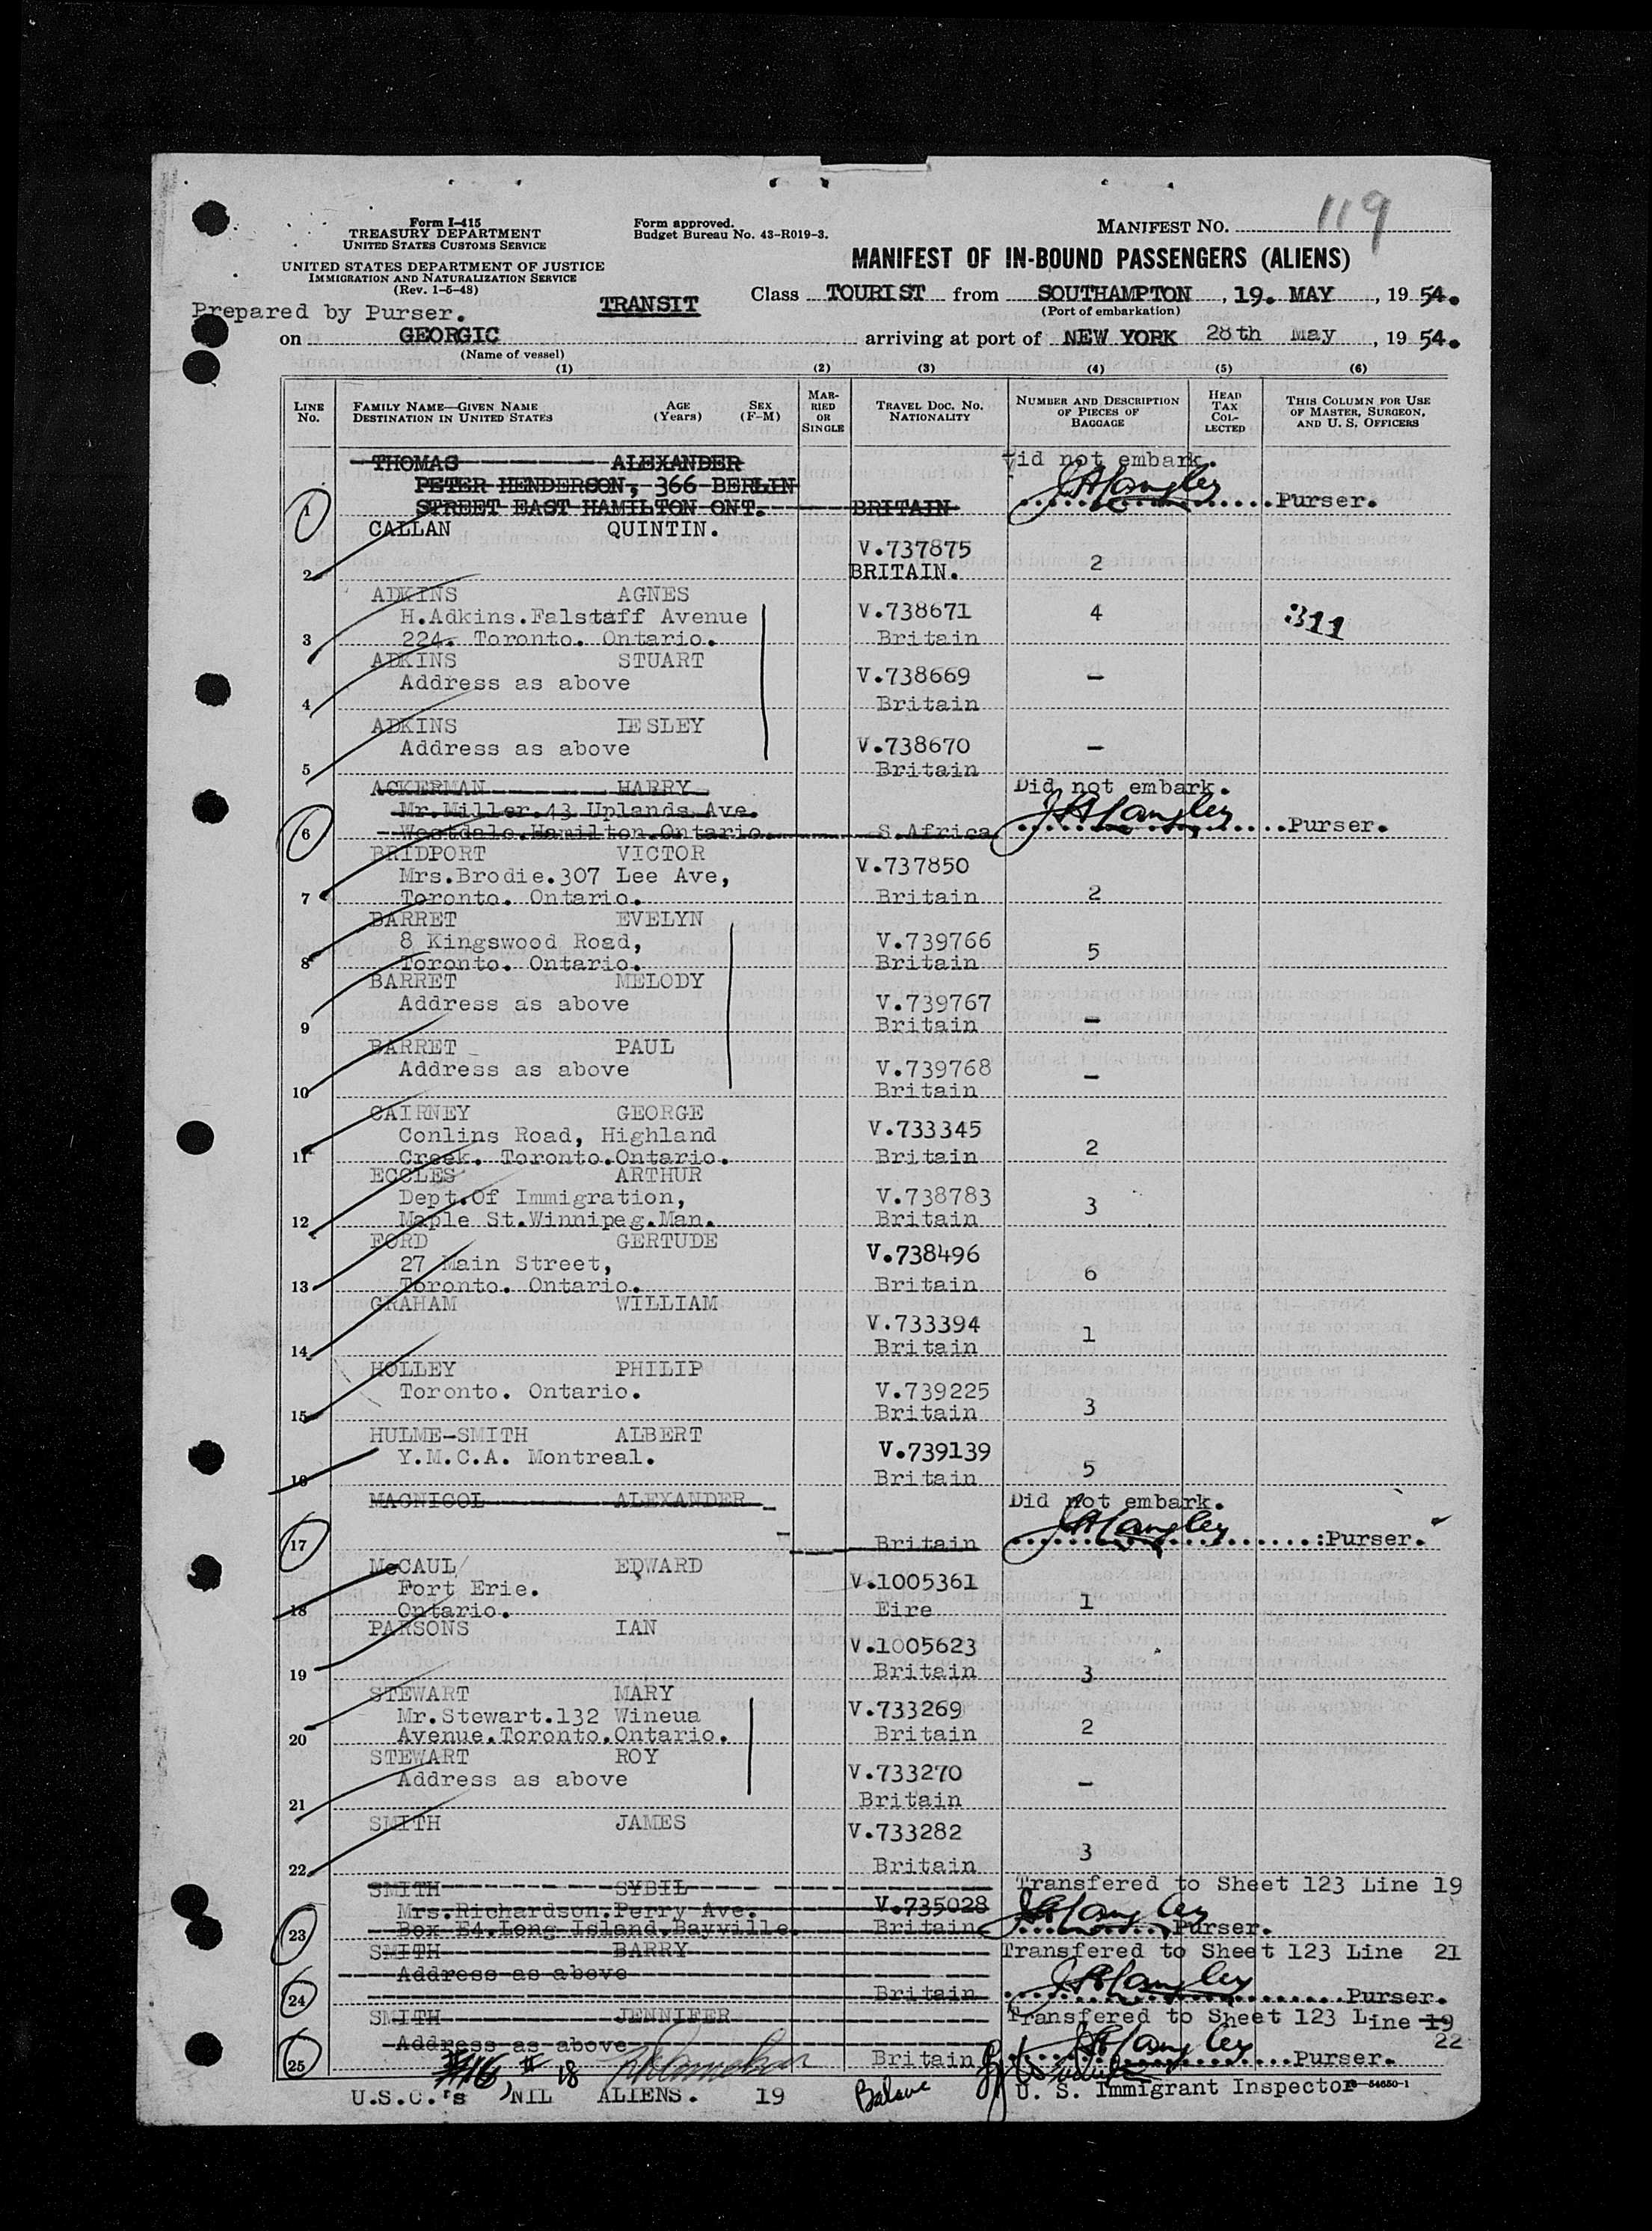 Form I-415
TREASURY DEPARTMENT
UNITED STATES CUSTOMS SERVICE
UNITED STATES DEPARTMENT OF JUSTICE
IMMIGRATION AND NATURALIZATION SERVICE
(Rev. 1-5-48)
Form approved.
Budget Bureau No. 43-R019-3.
MANIFEST NO. 119
MANIFEST OF IN-BOUND PASSENGERS (ALIENS)
Prepared by Purser.
TRANSIT
Class TOURIST from SOUTHAMPTON, 19. MAY, 19 54.
(Port of embarkation)
on GEORGIC arriving at port of NEW YORK 28th May, 19 54.
(Name of vessel)
(1) (2) (3) (4) (5) (6)
LINE NO.
FAMILY NAME—GIVEN NAME
DESTINATION IN UNITED STATES
AGE (Years)
SEX (F-M)
MARRIED OR SINGLE
TRAVEL DOC. NO.
NATIONALITY
NUMBER AND DESCRIPTION OF PIECES OF BAGGAGE
HEAD TAX COLLECTED
THIS COLUMN FOR USE OF MASTER, SURGEON, AND U. S. OFFICERS
THOMAS ALEXANDER Did not embark.
PETER HENDERSON, 366 BERLIN
1 STREET EAST HAMILTON ONT. BRITAIN J A Langley Purser.
CALLAN QUINTIN.
V.737875
2 BRITAIN. 2
ADKINS AGNES
H.Adkins.Falstaff Avenue V.738671 4 311
3 224. Toronto. Ontario. Britain
ADKINS STUART
Address as above V.738669 —
4 Britain
ADKINS LESLEY
Address as above V.738670 —
5 Britain
ACKERMAN HARRY Did not embark.
Mr.Miller.43 Uplands Ave.
6 Westdale.Hamilton.Ontario. S.Africa J A Langley Purser.
BRIDPORT VICTOR V.737850
Mrs.Brodie.307 Lee Ave,
7 Toronto. Ontario. Britain 2
BARRET EVELYN
8 Kingswood Road, V.739766 5
8 Toronto. Ontario. Britain
BARRET MELODY
Address as above V.739767
9 Britain —
BARRET PAUL
Address as above V.739768 —
10 Britain
CAIRNEY GEORGE
Conlins Road, Highland V.733345
11 Creek. Toronto.Ontario. Britain 2
ECCLES ARTHUR
Dept.Of Immigration, V.738783 3
12 Maple St.Winnipeg.Man. Britain
FORD GERTUDE
27 Main Street, V.738496
13 Toronto. Ontario. Britain 6
GRAHAM WILLIAM
V.733394 1
14 Britain
HOLLEY PHILIP
Toronto. Ontario. V.739225
15 Britain 3
HULME-SMITH ALBERT
Y.M.C.A. Montreal. V.739139
16 Britain 5
MACNICOL ALEXANDER Did not embark.
17 Britain J A Langley :Purser.
McCAUL EDWARD
Fort Erie. V.1005361
18 Ontario. Eire 1
PARSONS IAN
V.1005623
19 Britain 3
STEWART MARY
Mr.Stewart.132 Wineua V.733269
20 Avenue.Toronto.Ontario. Britain 2
STEWART ROY
Address as above V.733270 —
21 Britain
SMITH JAMES
V.733282
22 Britain 3
SMITH SYBIL Transfered to Sheet 123 Line 19
Mrs.Richardson.Perry Ave. V.735028
23 Box E4.Long Island.Bayville. Britain J A Langley Purser.
SMITH BARRY Transfered to Sheet 123 Line 21
Address as above
24 Britain J A Langley Purser.
SMITH JENNIFER Transfered to Sheet 123 Line 19
Address as above 22
25 Britain J A Langley Purser.
#16, # 18
U.S.C.'s NIL ALIENS. 19 U. S. Immigrant Inspector